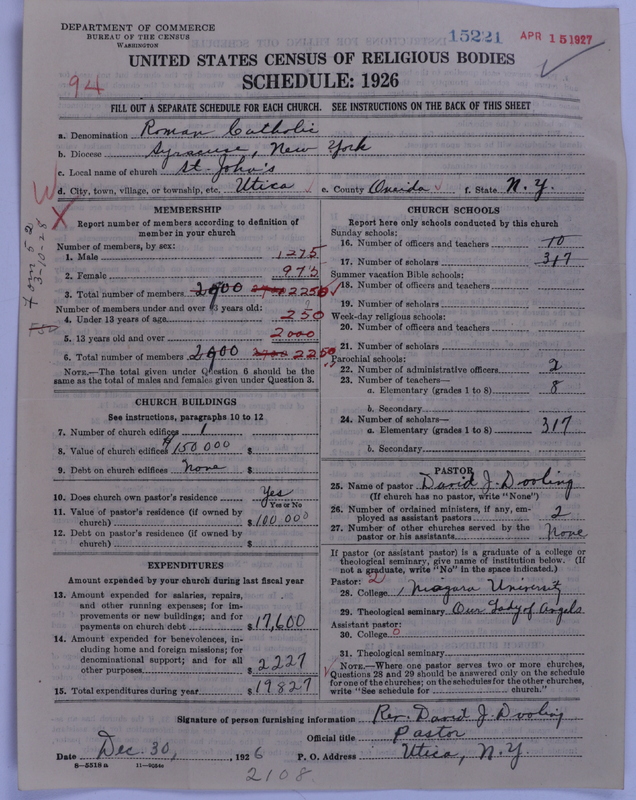 DEPARTMENT OF COMMERCE
BUREAU OF THE CENSUS
WASHINGTON
15221 APR 15 1927
UNITED STATES CENSUS OF RELIGIOUS BODIES
SCHEDULE: 1926
94
FILL OUT A SEPARATE SCHEDULE FOR EACH CHURCH. SEE INSTRUCTIONS ON THE BACK OF THIS SHEET
a. Denomination Roman Catholic
b. Diocese Syracuse, New York
c. Local name of church St. John's
d. City, town, village, or township, etc. Utica e. County Oneida f. State N. Y.
MEMBERSHIP
Report number of members according to definition of
member in your church
Number of members, by sex:
1. Male 1275
2. Female 975
3. Total number of members 2900 2250
Number of members under and over 13 years old:
4. Under 13 years of age 250
5. 13 years old and over 2000
6. Total number of members 2900 2250
NOTE.—The total given under Question 6 should be the
same as the total of males and females given under Question 3.
CHURCH BUILDINGS
See instructions, paragraphs 10 to 12
7. Number of church edifices 1
8. Value of church edifices $150000 $
9. Debt on church edifices None $
10. Does church own pastor's residence Yes
Yes or No
11. Value of pastor's residence (if owned by
church) $100,000
12. Debt on pastor's residence (if owned by
church) $
EXPENDITURES
Amount expended by your church during last fiscal year
13. Amount expended for salaries, repairs,
and other running expenses; for im-
provements or new buildings; and for
payments on church debt $17,600
14. Amount expended for benevolences, in-
cluding home and foreign missions; for
denominational support; and for all
other purposes $2227
15. Total expenditures during year $19827
CHURCH SCHOOLS
Report here only schools conducted by this church
Sunday schools:
16. Number of officers and teachers 10
17. Number of scholars 317
Summer vacation Bible schools:
18. Number of officers and teachers
19. Number of scholars
Week-day religious schools:
20. Number of officers and teachers
21. Number of scholars
Parochial schools:
22. Number of administrative officers 2
23. Number of teachers—
a. Elementary (grades 1 to 8) 8
b. Secondary
24. Number of scholars—
a. Elementary (grades 1 to 8) 317
b. Secondary
PASTOR
25. Name of pastor David J. Dooling
(If church has no pastor, write "None")
26. Number of ordained ministers, if any, em-
ployed as assistant pastors 2
27. Number of other churches served by the
pastor or his assistants None
If pastor (or assistant pastor) is a graduate of a college or
theological seminary, give name of institution below. (If
not a graduate, write "No" in the space indicated.)
Pastor: 2
28. College Niagara University
29. Theological seminary Our Lady of Angels
Assistant pastor:
30. College 0
31. Theological seminary
NOTE.—Where one pastor serves two or more churches,
Questions 28 and 29 should be answered only on the schedule
for one of the churches; on the schedules for the other churches,
write "See schedule for church."
Signature of person furnishing information Rev. David J. Dooling
Official title Pastor
Date Dec. 30, 1926 P. O. Address Utica, N. Y.
8—5518a
2108